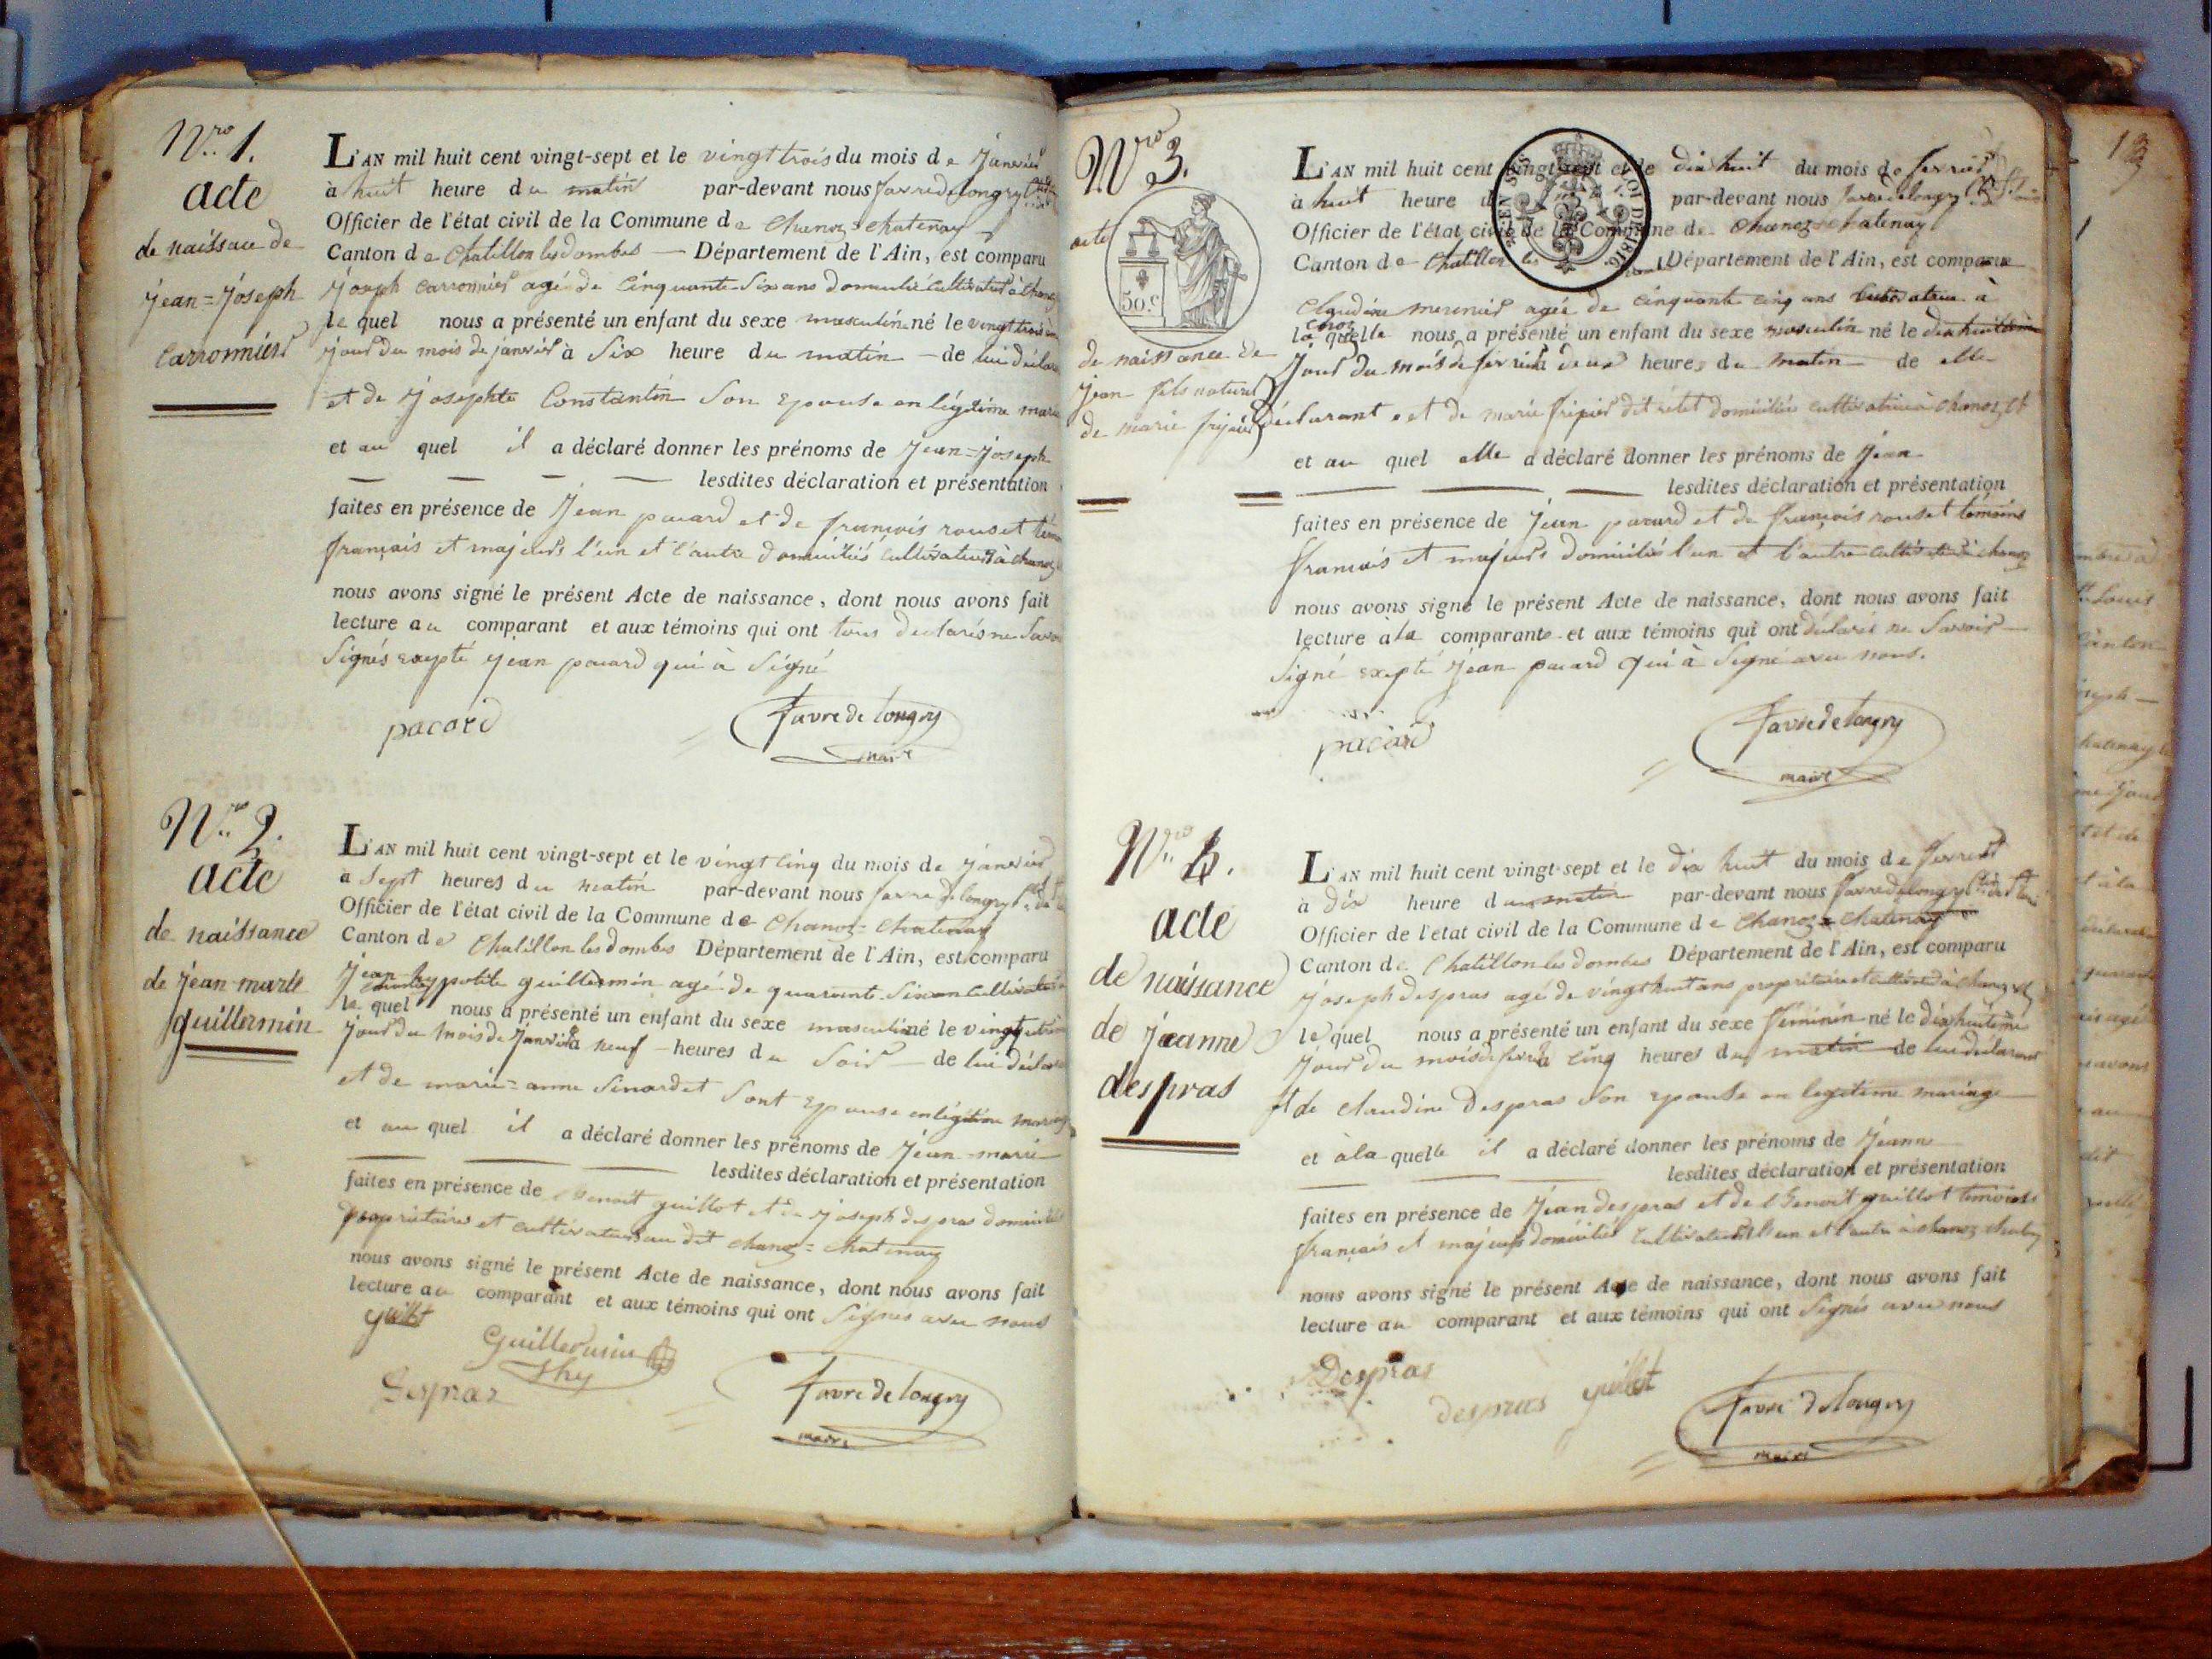 Nro. 1.
acte
de naissance de
jean=joseph
Carronnier
L'AN mil huit cent vingt-sept et le vingt trois du mois de janvier
à huit heure du matin par-devant nous favre de longry
Officier de l'état civil de la Commune de Chanoz=chatenay
Canton de Chatillon les dombes — Département de l'Ain, est comparu
joseph carronnier agé de Cinquante-six ans domicilié cultivateur à chanoz
le quel nous a présenté un enfant du sexe masculin né le vingt trois
jour du mois de janvier à Six heure du matin — de lui déclarant
et de josephte Constantin Son Epouse en légitime mariage
et au quel il a déclaré donner les prénoms de jean=joseph
lesdites déclaration et présentation
faites en présence de jean pacard et de françois rouset
français et majeurs l'un et l'autre domiciliés cultivateurs à chanoz
nous avons signé le présent Acte de naissance, dont nous avons fait
lecture au comparant et aux témoins qui ont tous declarés ne savoir
Signés exepté jean pacard qui à Signé
pacard
favre de longry
maire
Nro. 2.
acte
de naissance
de jean-marie
guillermin
L'AN mil huit cent vingt-sept et le vingt cinq du mois de janvier
à Sept heures du matin par-devant nous favre de longry
Officier de l'état civil de la Commune de Chanoz=Chatenay
Canton de Chatillon les dombes Département de l'Ain, est comparu
jean hyppolite guillermin agé de quarante-six ans cultivateur
le quel nous a présenté un enfant du sexe masculin né le vingt
jour du mois de janvier à neuf — heures du Soir — de lui déclarant
et de marie=anne Sinardet Sont Epouse en légitime mariage
et au quel il a déclaré donner les prénoms de jean-marie
lesdites déclaration et présentation
faites en présence de Benoit guillot et de joseph despras domiciliés
propriétaires et cultivateurs au dit chanoz=chatenay
nous avons signé le présent Acte de naissance, dont nous avons fait
lecture au comparant et aux témoins qui ont Signés avec nous
guillot
Guillermin
Despras
favre de longry
maire
Nro 3.
acte
50 c.
de naissance de
jean fils naturel
de marie fripier
L'AN mil huit cent vingt-sept et le dix huit du mois de fevrier
à huit heure par-devant nous favre de longry
Officier de l'état civil de la Commune de Chanoz chatenay
Canton de Chatillon les Département de l'Ain, est comparue
Claudine meunier agée de cinquante cinq ans cultivatrice à
chanoz
la quelle nous a présenté un enfant du sexe masculin né le dix huitième
jour du mois de fevrier à deux heures du matin de elle
déclarant et de marie fripier dit domiciliée cultivatrice à chanoz
et au quel elle a déclaré donner les prénoms de jean
lesdites déclaration et présentation
faites en présence de jean pacard et de françois rouset témoins
français et majeurs domiciliés l'un et l'autre cultivateurs à chanoz
nous avons signé le présent Acte de naissance, dont nous avons fait
lecture à la comparante et aux témoins qui ont déclarés ne Savoir
Signé exepté jean pacard qui à Signé avec nous.
pacard
favre de longry
maire
Nro 4.
acte
de naissance
de jeanne
despras
L'AN mil huit cent vingt-sept et le dix huit du mois de fevrier
à dix heure du matin par-devant nous favre de longry
Officier de l'état civil de la Commune de Chanoz=Chatenay
Canton de Chatillon les dombes Département de l'Ain, est comparu
joseph despras agé de vingt huit ans propriétaire et cultivateur à chanoz
le quel nous a présenté un enfant du sexe féminin né le dix huitième
jour du mois de fevrier à cinq heures du matin de lui déclarant
et de claudine despras Son epouse en legitime mariage
et à la quelle il a déclaré donner les prénoms de jeanne
lesdites déclaration et présentation
faites en présence de jean despras et de Benoit guillot temoins
français et majeurs domiciliés cultivateurs l'un et l'autre à chanoz
nous avons signé le présent Acte de naissance, dont nous avons fait
lecture au comparant et aux témoins qui ont Signés avec nous
Despras
despras guillot
favre de longry
maire